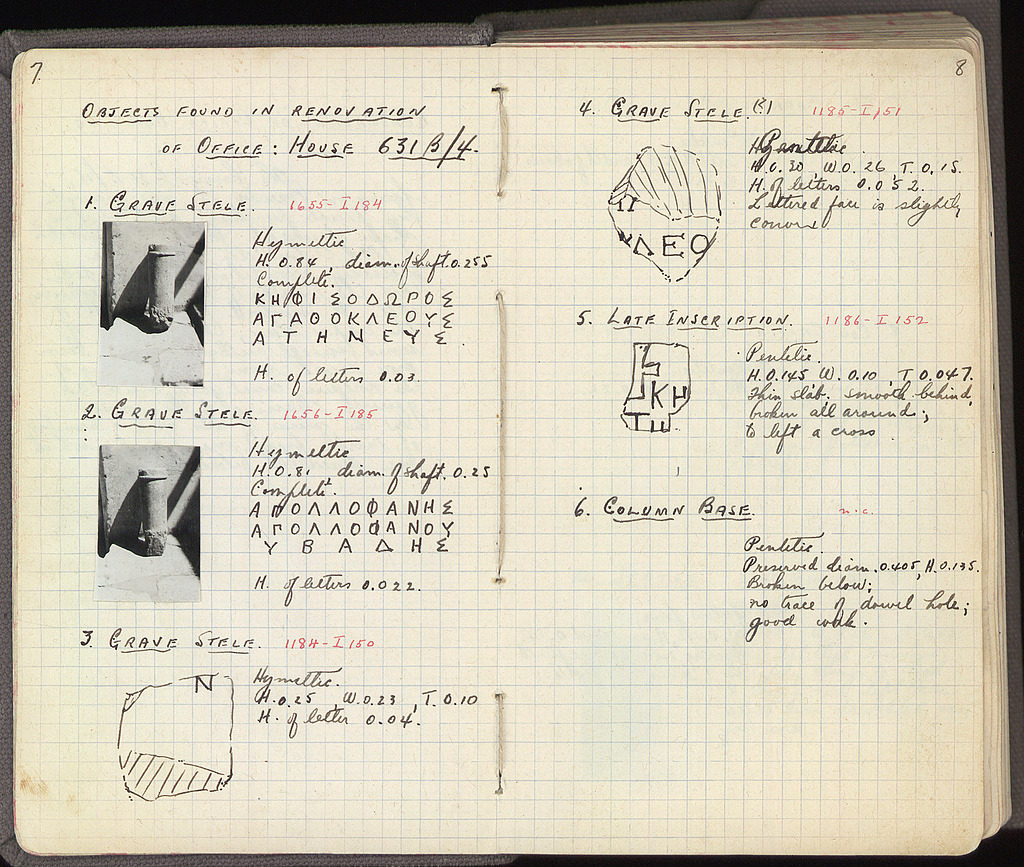 7
OBJECTS FOUND IN RENOVATION
OF OFFICE: HOUSE 631B/4.
1. GRAVE STELE. 1655-I 184
Hymettic
H. 0.84, diam. of shaft. 0.255
Complete.
ΚΗΦΙΣΟΔΩΡΟΣ
ΑΓΑΘΟΚΛΕΟΥΣ
ΑΤΗΝΕΥΣ.
H. of letters 0.03.
2. GRAVE STELE. 1656-I 185
Hymettic
H. 0.81 diam. of shaft. 0.25
Complete.
ΑΠΟΛΛΟΦΑΝΗΣ
ΑΠΟΛΛΟΦΑΝΟΥ
ΥΒΑΔΗΣ
H. of letters 0.022.
3. GRAVE STELE. 1184-I 150
N
Hymettic.
H. 0.25, W. 0.23, T. 0.10
H. of letter 0.04.
8
4. GRAVE STELE.(?) 1185-I 151
ΛΕΟ
Pentelic.
H. 0.30, W. 0.26, T. 0.15.
H. of letters 0.052.
Lettered face is slightly
convex
5. LATE INSCRIPTION. 1186-I 152
ΚΗ
Pentelic.
H. 0.145, W. 0.10, T 0.047.
Thin slab. smooth behind,
broken all around;
to left a cross
6. COLUMN BASE. n.c.
Pentelic.
Preserved diam. 0.405, H. 0.135.
Broken below;
no trace of dowel hole;
good work.